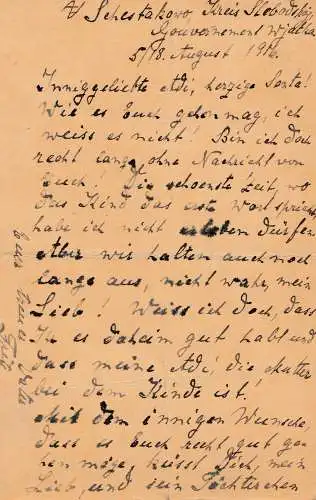 Schestakowo, Kreis Slobodskoj,
Gouvernement Wjatka
5/18. August 1916.
Inniggeliebte Adi, herzige Senta!
Wie es Euch gehen mag, ich
weiss es nicht! Bin ich doch
recht lange ohne Nachricht von
Euch! Die schoenste Zeit, wo
das Kind das erste Wort spricht,
habe ich nicht erleben dürfen
Aber wir halten auch noch
lange aus, nicht wahr, mein
Lieb! Weiss ich doch, dass
Ihr es daheim gut habt und
dass meine Adi, die Mutter
bei dem Kinde ist!
Mit dem innigen Wunsche,
dass es Euch recht gut ge-
hen möge, küsst Dich, mein
Lieb, und sein Töchterchen
Euer treuer